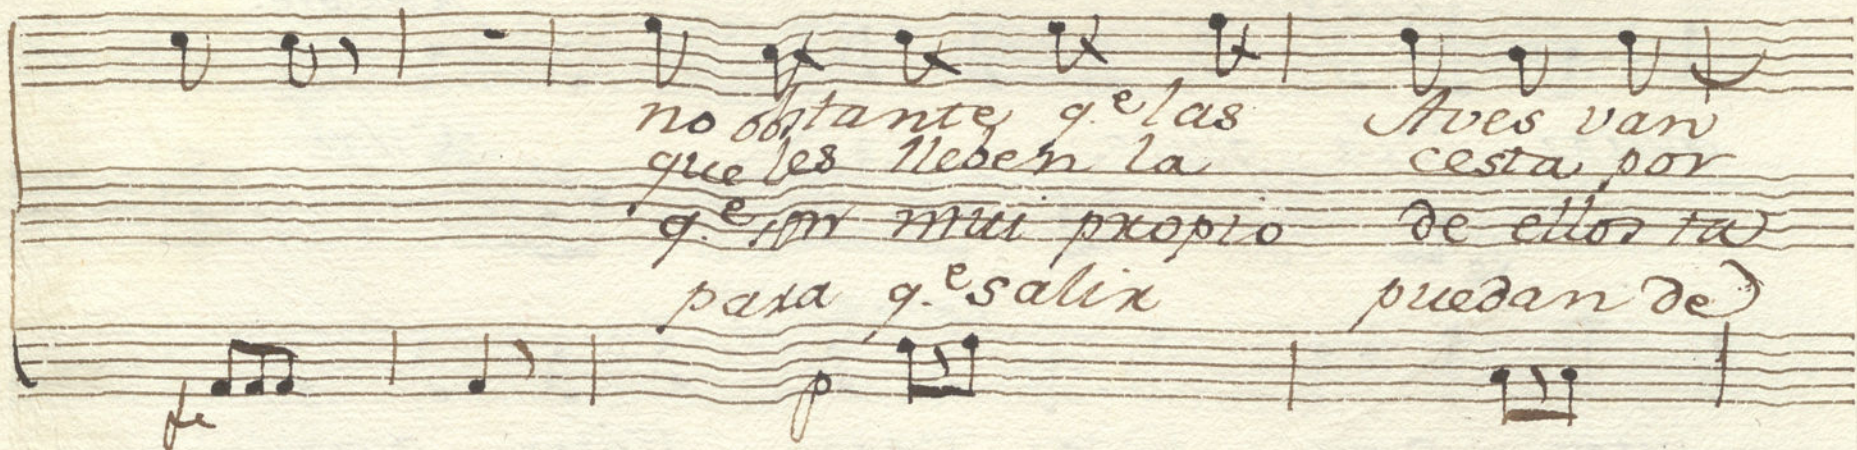 no obstante q.e las Aves van
que les lleben la cesta por
q.e son mui propio de ellos ta
para q.e salir puedan de
fe p